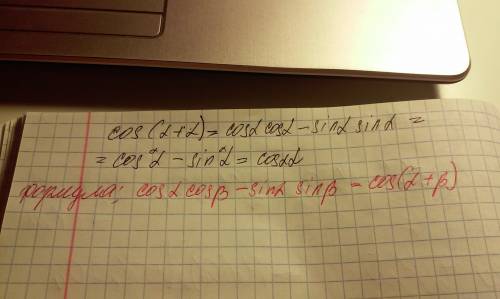 cos(α+α)=cosα cosα-sinα sinα=
=cos²α-sin²α=cos2α
формула: cosα cosβ-sinα sinβ=cos(α+β)